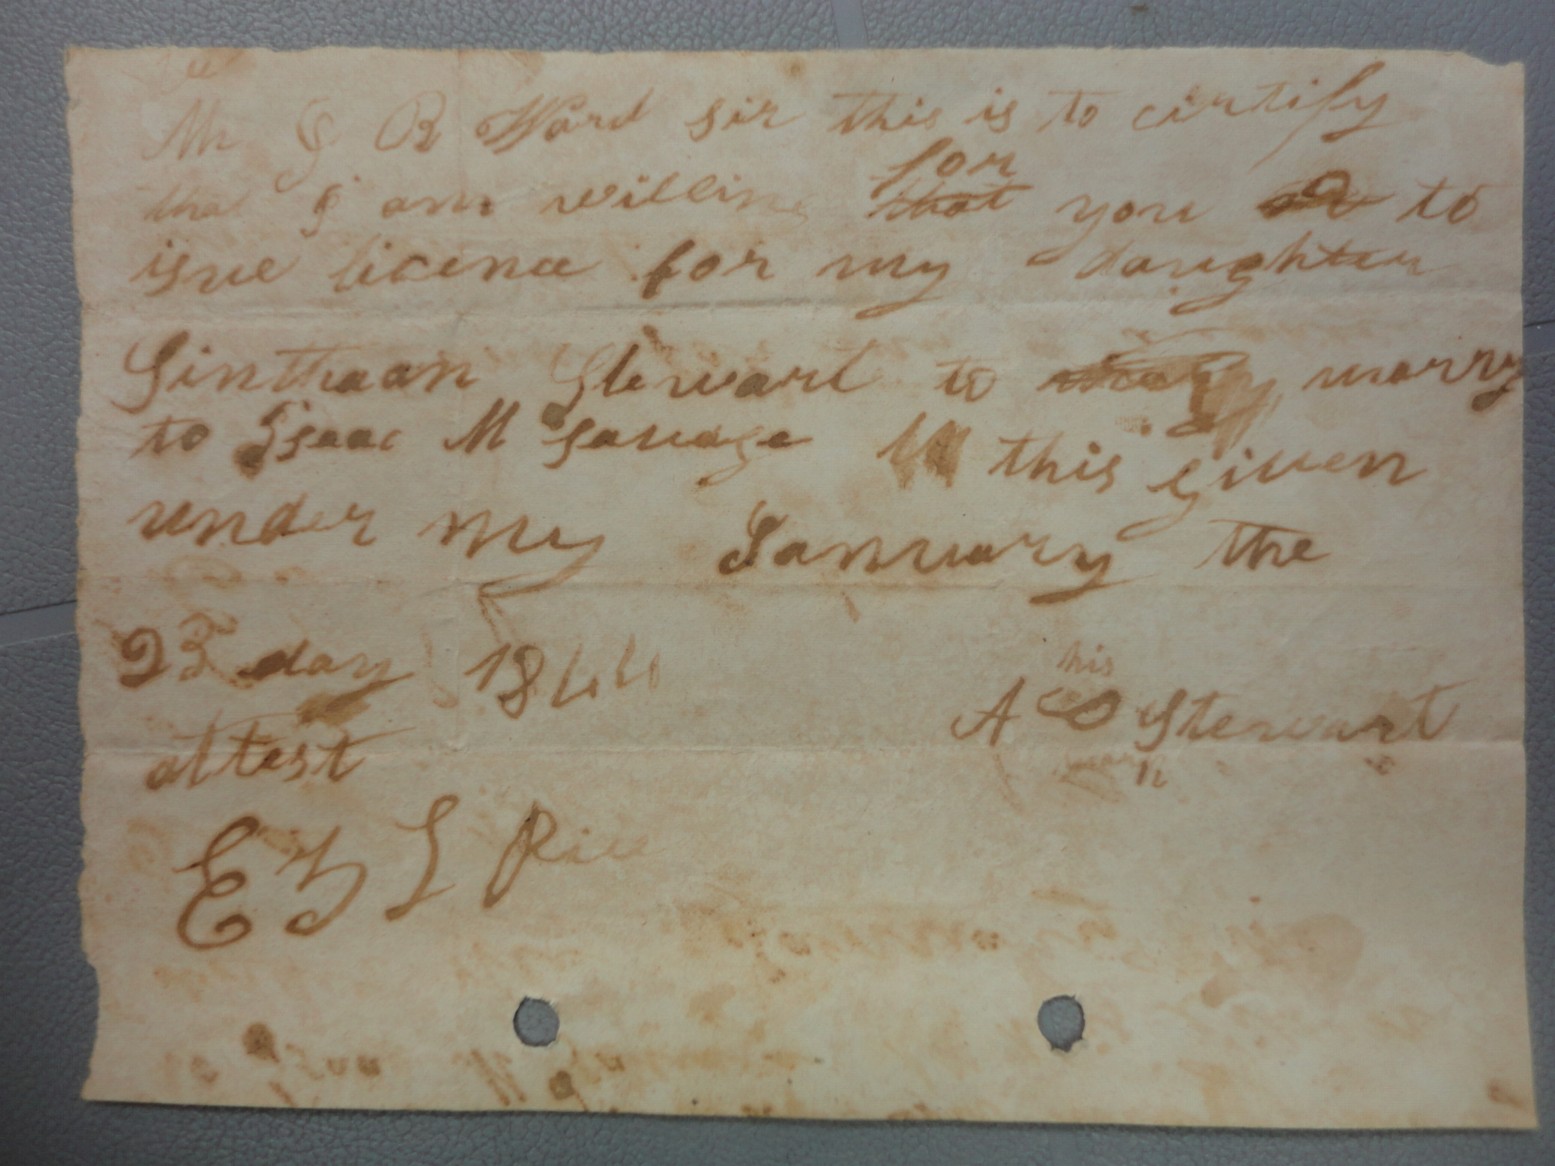 Mr J B Ward sir this is to certify
that I am willing for you to
isue licence for my daughter
Sinthaan Stewart to marry
to Isaac M Savage this given
under my January the
23 day 1844
his
A Stewart
attest
E L Rice